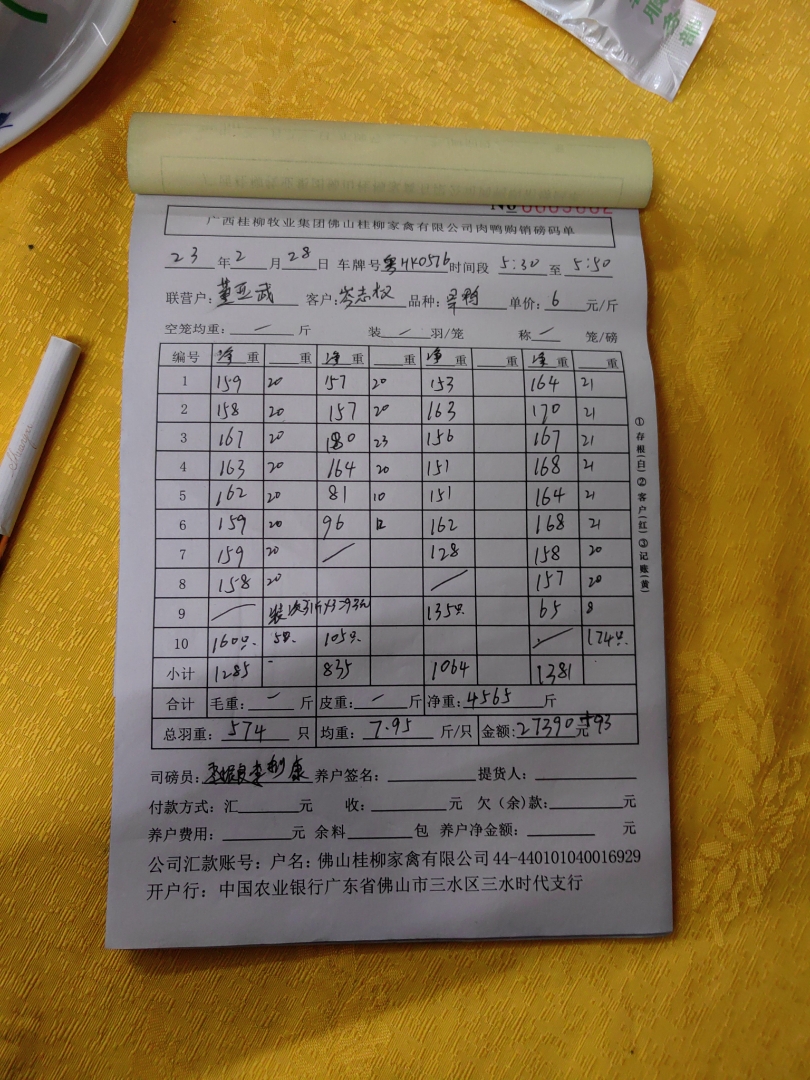 服务部
№ 0009002
广西桂柳牧业集团佛山桂柳家禽有限公司肉鸭购销磅码单
23 年 2 月 28 日 车牌号 粤HK0576 时间段 5:30 至 5:50
联营户: 董亚武 客户: 岑志权 品种: 单价: 6 元/斤
空笼均重: 一 斤 装 一 羽/笼 称 一 笼/磅
编号 净重 重 净重 重 净重 重 净重 重
1 159 20 157 20 153 164 21
2 158 20 157 20 163 170 21
3 167 20 180 23 156 167 21
4 163 20 164 20 151 168 21
5 162 20 81 10 151 164 21
6 159 20 96 12 162 168 21
7 159 20 / 128 158 20
8 158 20 / 157 20
9 / 装 135只 65 8
10 160只 5只 105只 / 174只
小计 1285 835 1064 1381
合计 毛重: 一 斤 皮重: 一 斤 净重: 4565 斤
总羽重: 574 只 均重: 7.95 斤/只 金额: 27390元+593
司磅员: 养户签名: 提货人:
付款方式: 汇 元 收: 元 欠(余)款: 元
养户费用: 元 余料 包 养户净金额: 元
公司汇款账号: 户名: 佛山桂柳家禽有限公司 44-440101040016929
开户行: 中国农业银行广东省佛山市三水区三水时代支行
①存根(白)②客户(红)③记账(黄)